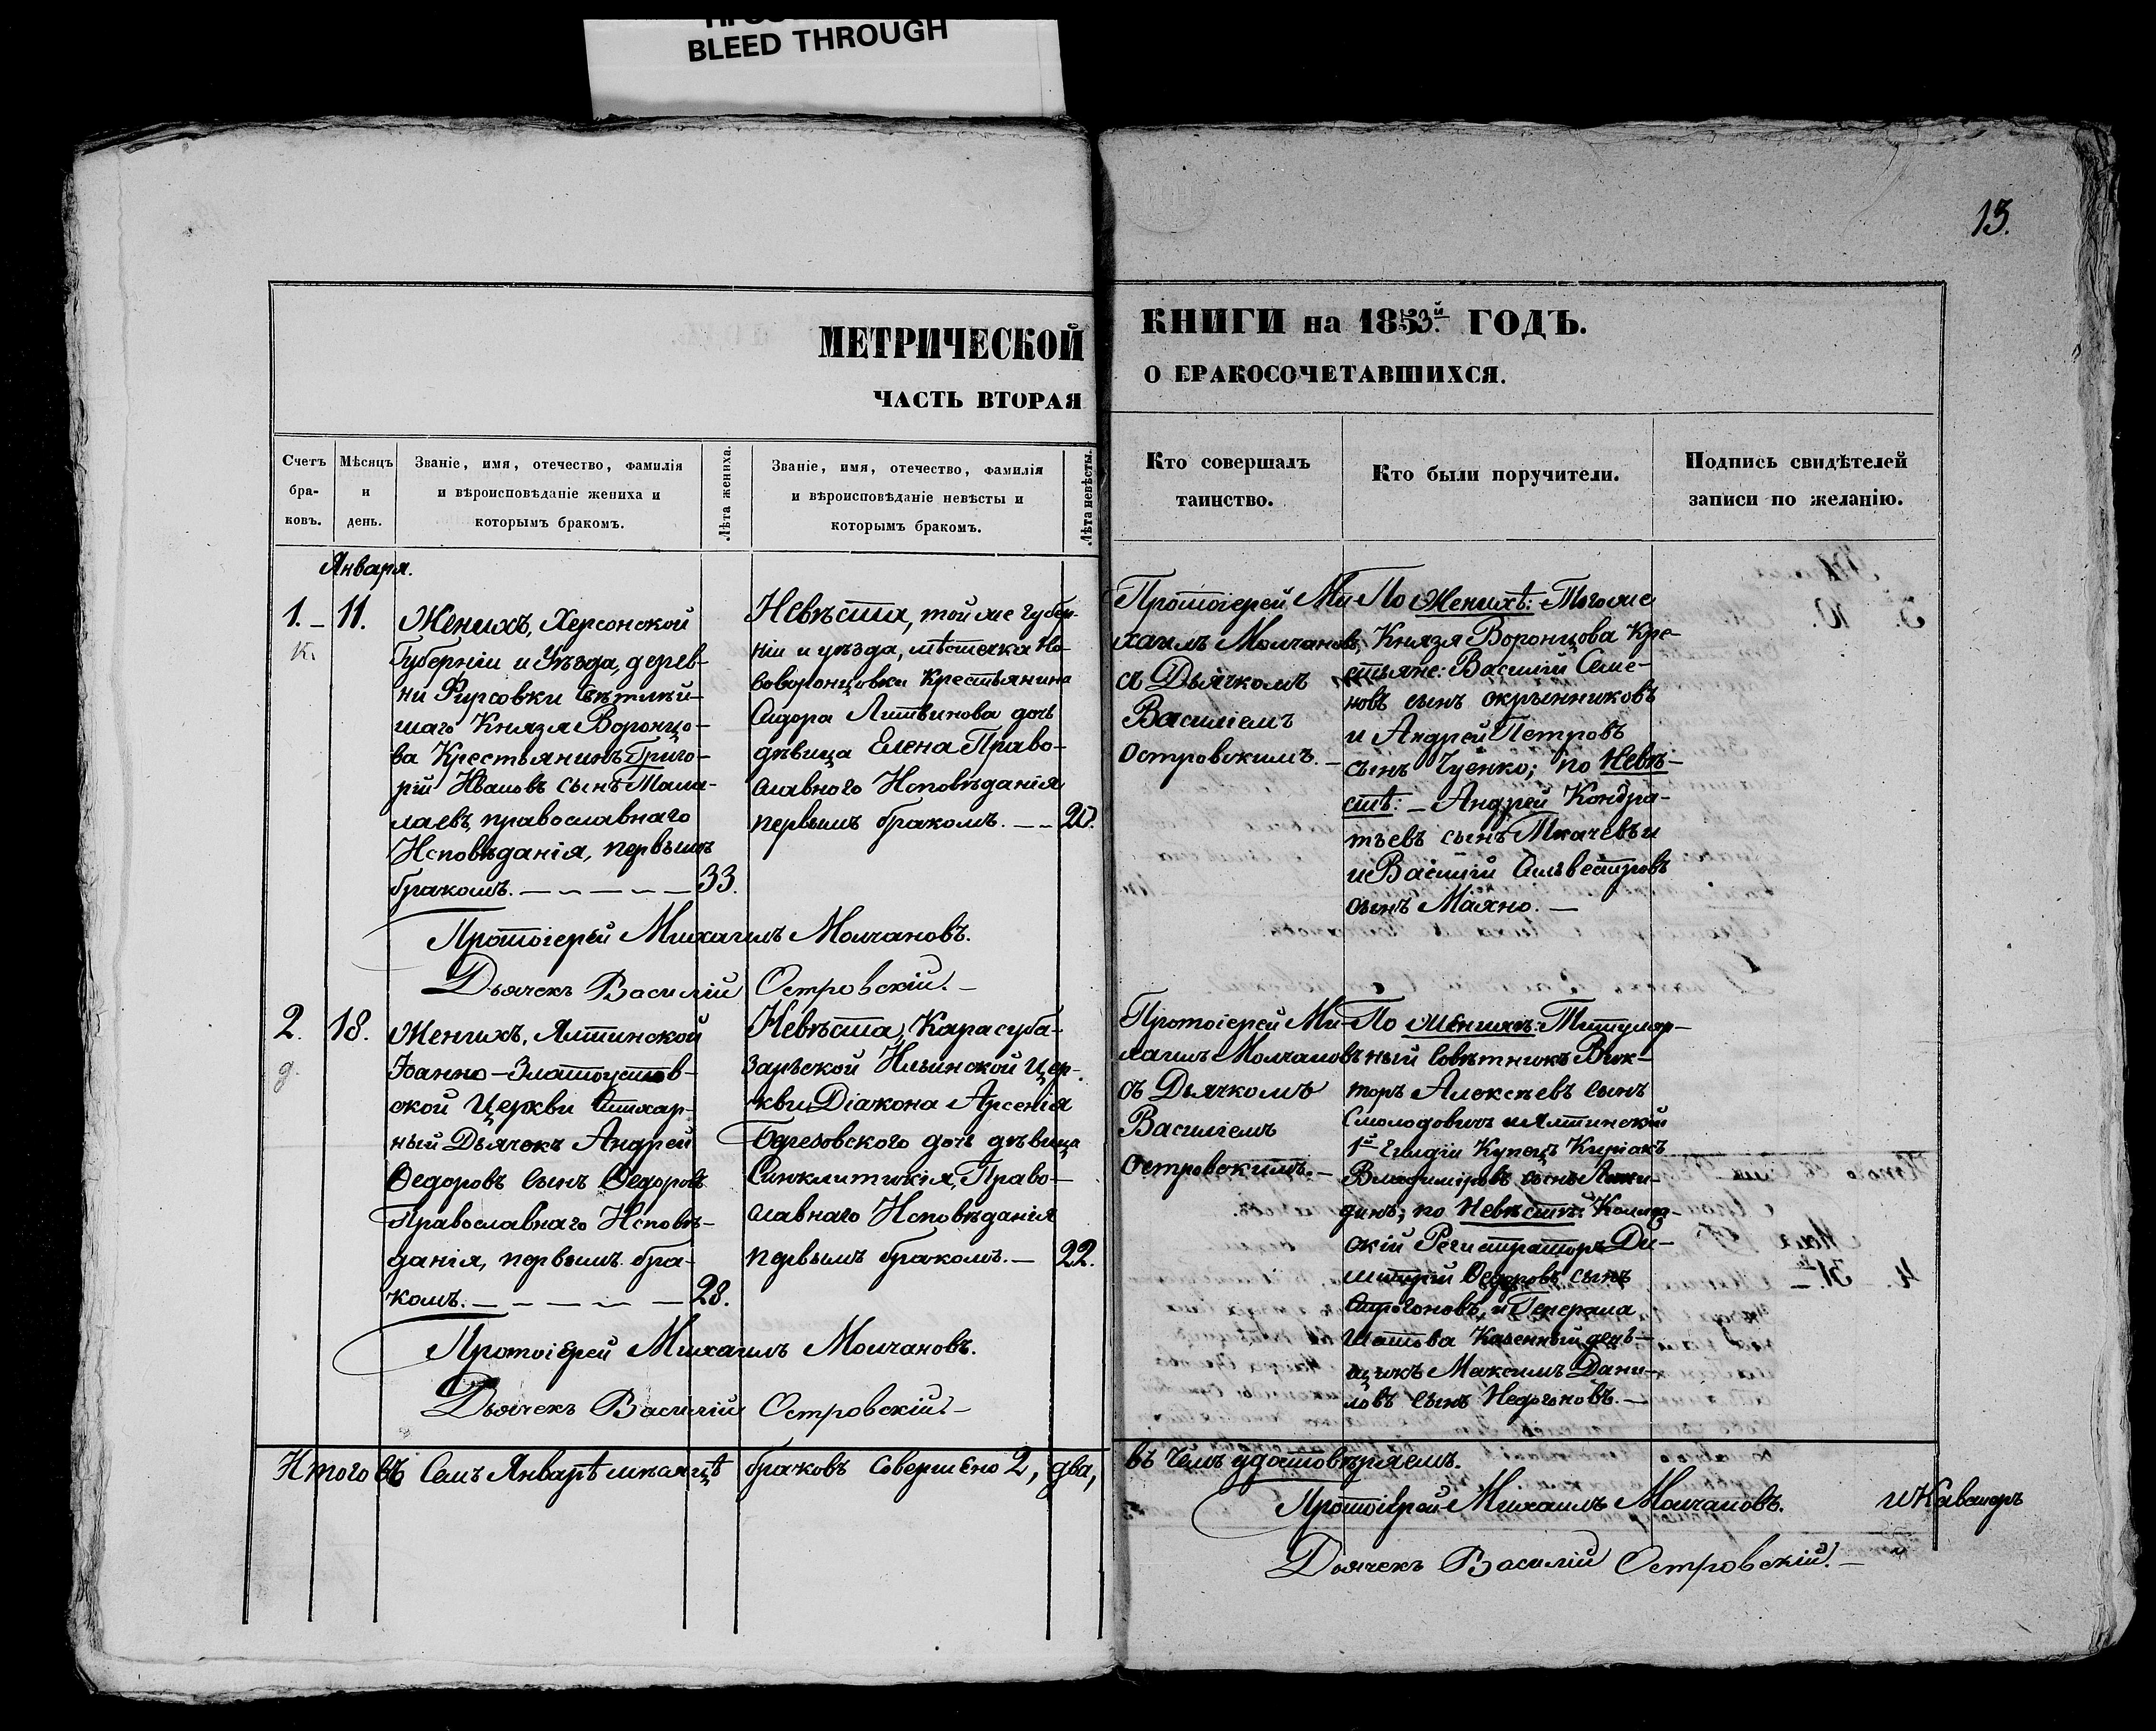 BLEED THROUGH
13.
МЕТРИЧЕСКОЙ
ЧАСТЬ ВТОРАЯ
КНИГИ на 1853й. ГОДЪ.
О БРАКОСОЧЕТАВШИХСЯ.
Счетъ
бра-
ковъ.
Мѣсяцъ
и
день.
Званіе, имя, отечество, фамилія
и вѣроисповѣданіе жениха и
которымъ бракомъ.
Лѣта жениха.
Званіе, имя, отечество, фамилія
и вѣроисповѣданіе невѣсты и
которымъ бракомъ.
Лѣта невѣсты.
Кто совершалъ
таинство.
Кто были поручители.
Подпись свидѣтелей
записи по желанію.
Января.
1. – 11.
к.
Женихъ, Херсонской
Губерніи и Уѣзда, дерев-
ни Фирсовки Свѣтлѣй-
шаго Князя Воронцо-
ва Крестьянинъ Григо-
рій Ивановъ сынъ Мама-
лаевъ, православнаго
Исповѣданія, первымъ
бракомъ. — — — — — 33.
Невѣста, той же губер-
ніи и уѣзда, мѣстечка Но-
воворонцовки Крестьянина
Сидора Литвинова дочь
дѣвица Елена Право-
славного Исповѣданія
первымъ бракомъ. — — 20.
Протоіерей Ми-
хаилъ Молчановъ,
съ Дьячкомъ
Василіемъ
Островскимъ. –
По Женихѣ: Тогоже
Князя Воронцова Кре-
стьяне: Василій Семе-
новъ сынъ
и Андрей Петровъ
сынъ Чуенко; по Невѣ-
стѣ: – Андрей Кондра-
тьевъ сынъ Ткачевъ и
и Василій Сильвестровъ
сынъ Маяно. —
Протоіерей Михаилъ Молчановъ.
Дьячекъ Василій Островскій. –
2. 18.
д.
Женихъ, Ялтинской
Іоанно-Златоустов-
ской Церкви Стихар-
ный Дьячекъ Андрей
Ѳедоровъ Сынъ Ѳедоровъ
Православнаго Исповѣ-
данія, первымъ бра-
комъ. — — — — — 28.
Невѣста, Карасуба-
зарской Ильинской Цер-
кви, Діакона Арсенія
Березовского дочь дѣвица
Синклитикія, Право-
славнаго Исповѣданія
первымъ бракомъ. — 22.
Протоіерей Ми-
хаилъ Молчановъ
съ Дьячкомъ
Василіемъ
Островскимъ. –
По Женихѣ: Титуляр-
ный Совѣтникъ Вик-
торъ Алексѣевъ Сынъ
Смолодовичъ и Ялтинскій
1й Гилдіи Купецъ Киріакъ
Владиміровъ сынъ
динъ; по Невѣстѣ: Коллеж-
скій Регистраторъ Ди-
митрій Ѳедоровъ сынъ
Строгоновъ, и Генерала
Шатова Казенный ден-
щикъ Максимъ Дани-
ловъ Сынъ Недогоновъ. —
Протоіерей Михаилъ Молчановъ.
Дьячекъ Василій Островскій. –
Итого въ Семъ Январѣ мѣсяцѣ браковъ Совершено 2, два, въ чемъ удостовѣряемъ.
Протоіерей Михаилъ Молчановъ. и Кавалеръ
Дьячекъ Василій Островскій. –